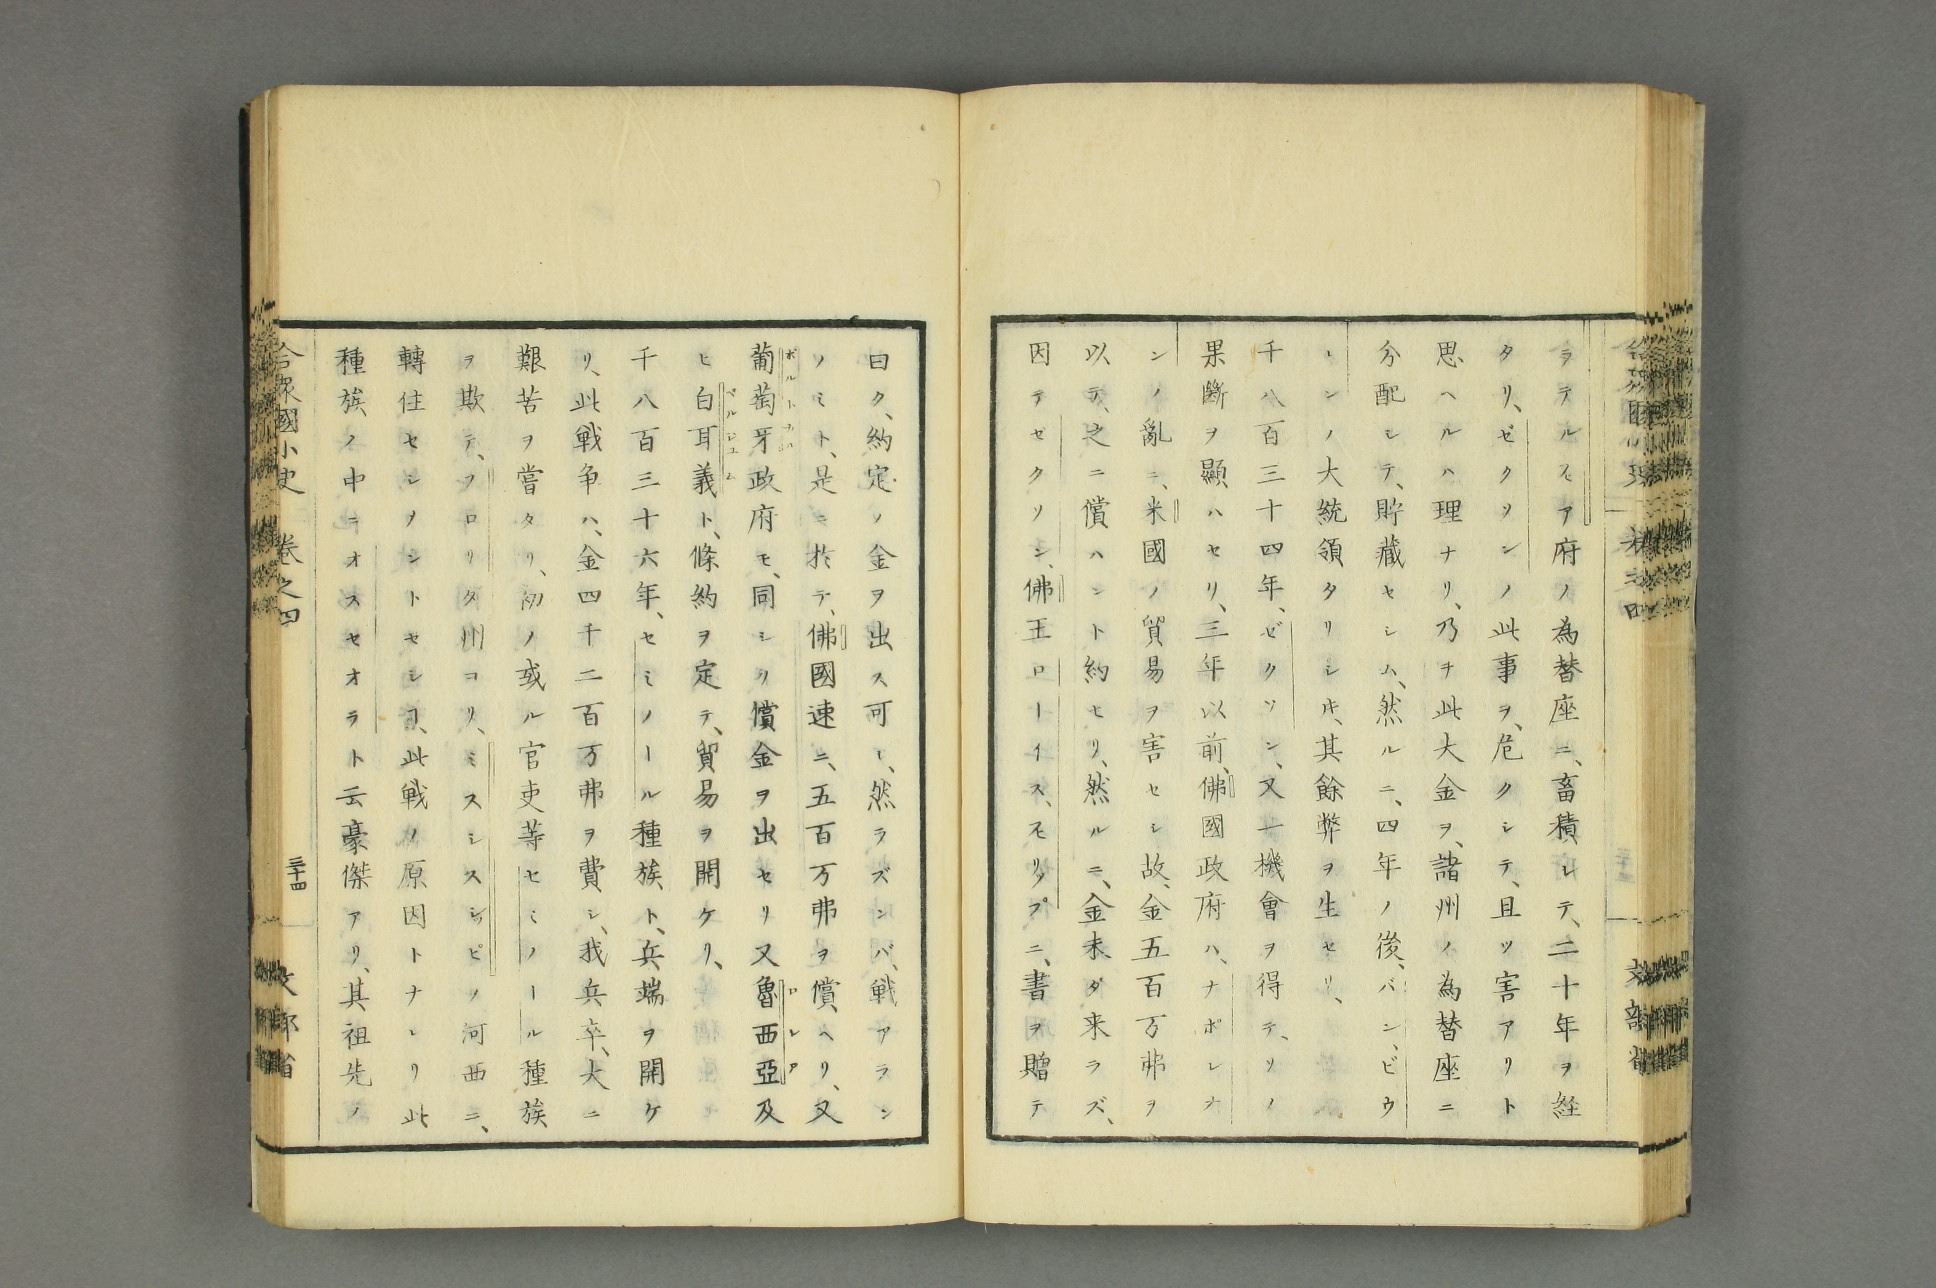 ラデルヒア府ノ為替座ニ、畜積シテ、二十年ヲ経
タリ、ゼクソンノ此事ヲ、危クシテ、且ツ害アリト
思ヘルハ理ナリ、乃チ此大金ヲ、諸州ノ為替座ニ
分配シテ、貯藏セシム、然ルニ、四年ノ後、バン、ビウ
レンノ大統領タリシ片、其餘弊ヲ生セリ、
千八百三十四年、ゼクソン、又一機會ヲ得テ、ソノ
果斷ヲ顯ハセリ、三年以前、佛國政府ハ、ナポレオ
ンノ亂ニ、米國ノ貿易ヲ害セシ故、金五百万弗ヲ
以テ、之ニ償ハント約セリ、然ルニ、金未ダ来ラズ、
因テゼクソン、佛王ローイス、ヒリップニ、書ヲ贈テ
曰ク、約定ノ金ヲ出ス可シ、然ラズンバ、戦アラン
ノミト、是ニ於テ、佛國速ニ、五百万弗ヲ償ヘリ、又
葡萄牙政府モ、同シク償金ヲ出セリ又魯西亞及
ヒ白耳義ト、條約ヲ定テ、貿易ヲ開ケリ、
千八百三十六年、セミノール種族ト、兵端ヲ開ケ
リ、此戦争ハ、金四千二百万弗ヲ費シ、我兵卒、大ニ
艱苦ヲ嘗タリ、初ノ或ル官吏等セミノール種族
ヲ欺テ、フロリタ州ヨリ、ミスシスシッピノ河西ニ、
轉住セシメントセシヿ、此戦ノ原因トナレリ此
種族ノ中ニオスセオラト云豪傑アリ、其祖先ノ
合衆國小史 卷之四 三十四 文部省